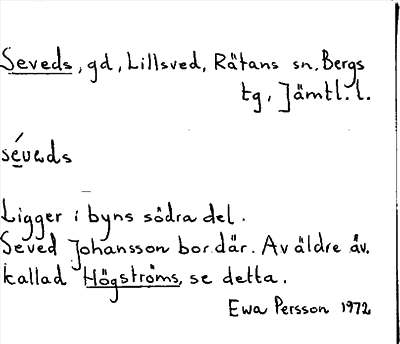 Seveds, gd, Lillsved, Rätans sn. Bergs
tg, Jämtl. l.
séveds
Ligger i byns södra del.
Seved Johansson bor där. Av äldre äv.
kallad Högströms, se detta.
Ewa Persson 1972